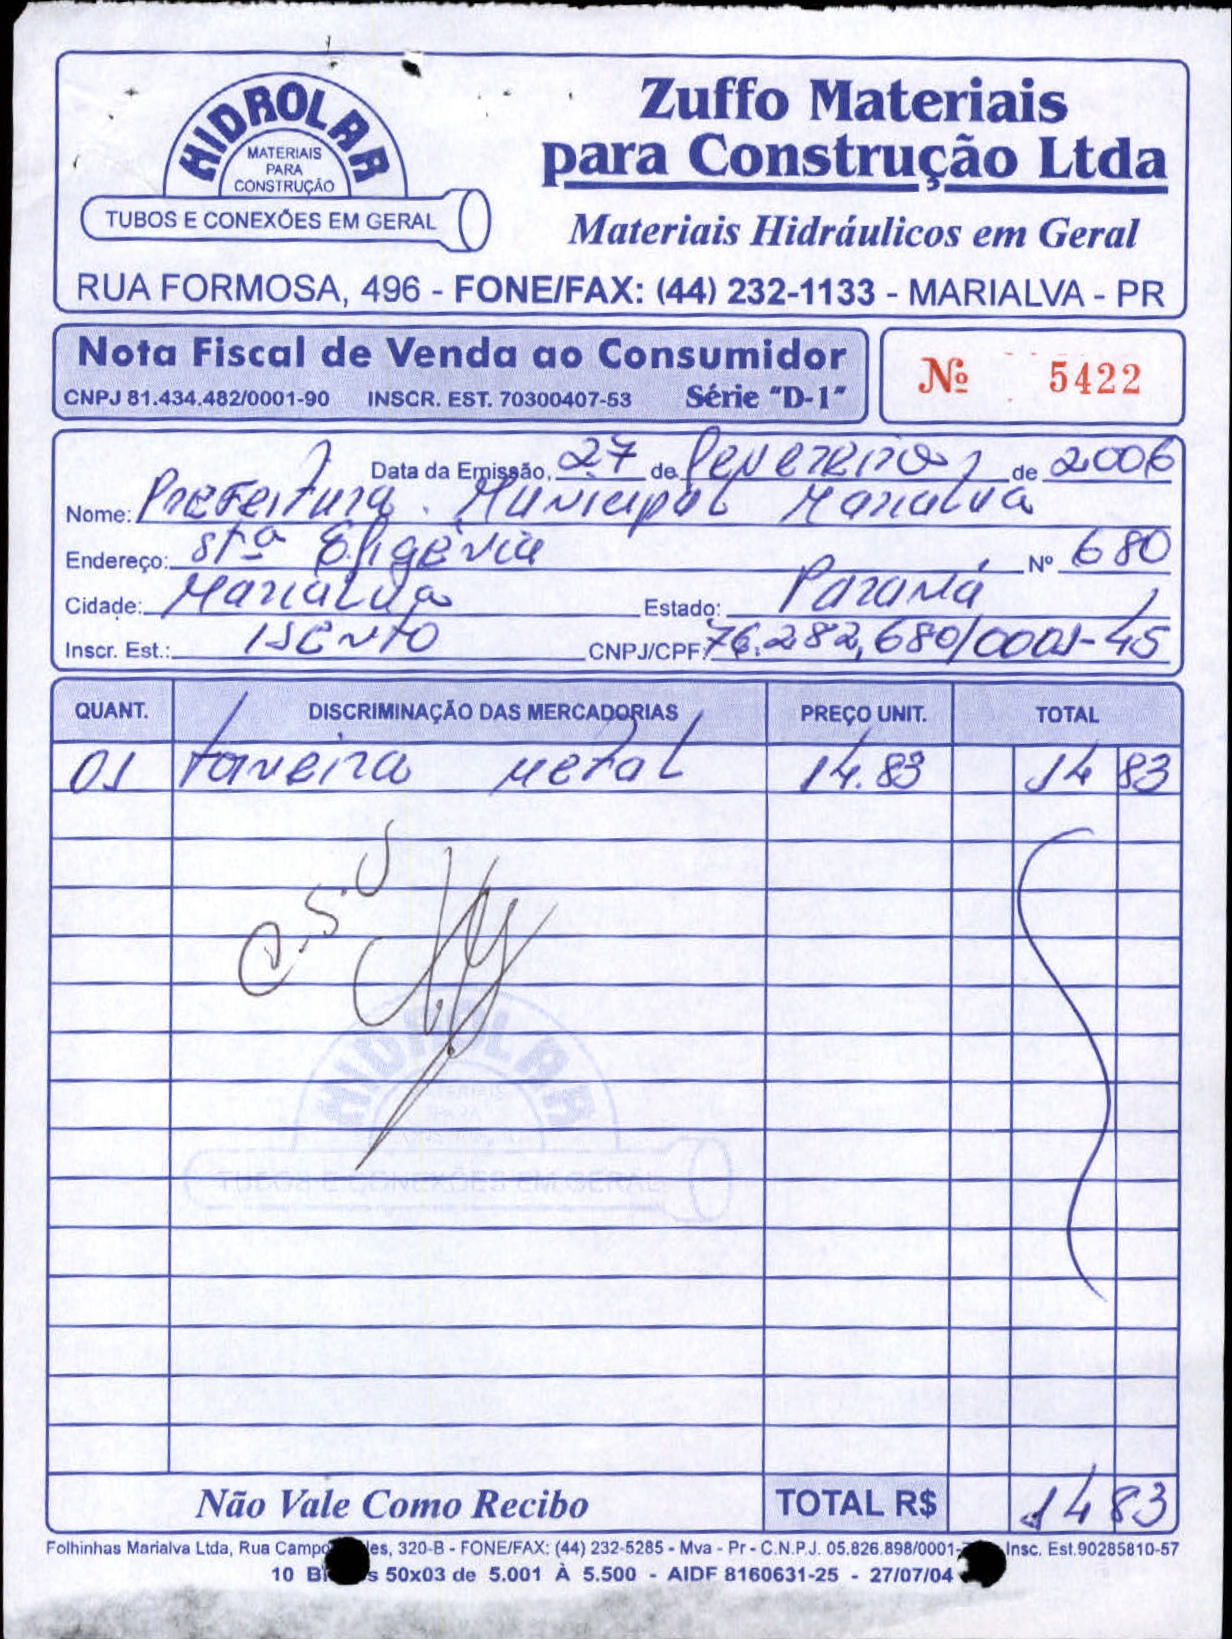 HIDROLAR
MATERIAIS
PARA
CONSTRUÇÃO
TUBOS E CONEXÕES EM GERAL
Zuffo Materiais
para Construção Ltda
Materiais Hidráulicos em Geral
RUA FORMOSA, 496 - FONE/FAX: (44) 232-1133 - MARIALVA - PR
Nota Fiscal de Venda ao Consumidor
CNPJ 81.434.482/0001-90 INSCR. EST. 70300407-53 Série "D-1"
Nº 5422
Data da Emissão, 27 de Fevereiro de 2006
Nome: Prefeitura Municipal Marialva
Endereço: Stª Efigênia Nº 680
Cidade: Marialva Estado: Paraná
Inscr. Est.: ISENTO CNPJ/CPF: 76.282.680/0001-45
QUANT. DISCRIMINAÇÃO DAS MERCADORIAS PREÇO UNIT. TOTAL
01 torneira metal 14.83 14 83
HIDROLAR
MATERIAIS
PARA
TUBOS E CONEXÕES EM GERAL
Não Vale Como Recibo TOTAL R$ 14 83
Folhinhas Marialva Ltda, Rua 320-B - FONE/FAX: (44) 232-5285 - Mva - Pr - C.N.P.J. 05.826.898/0001- Insc. Est.90285810-57
10 50x03 de 5.001 À 5.500 - AIDF 8160631-25 - 27/07/04